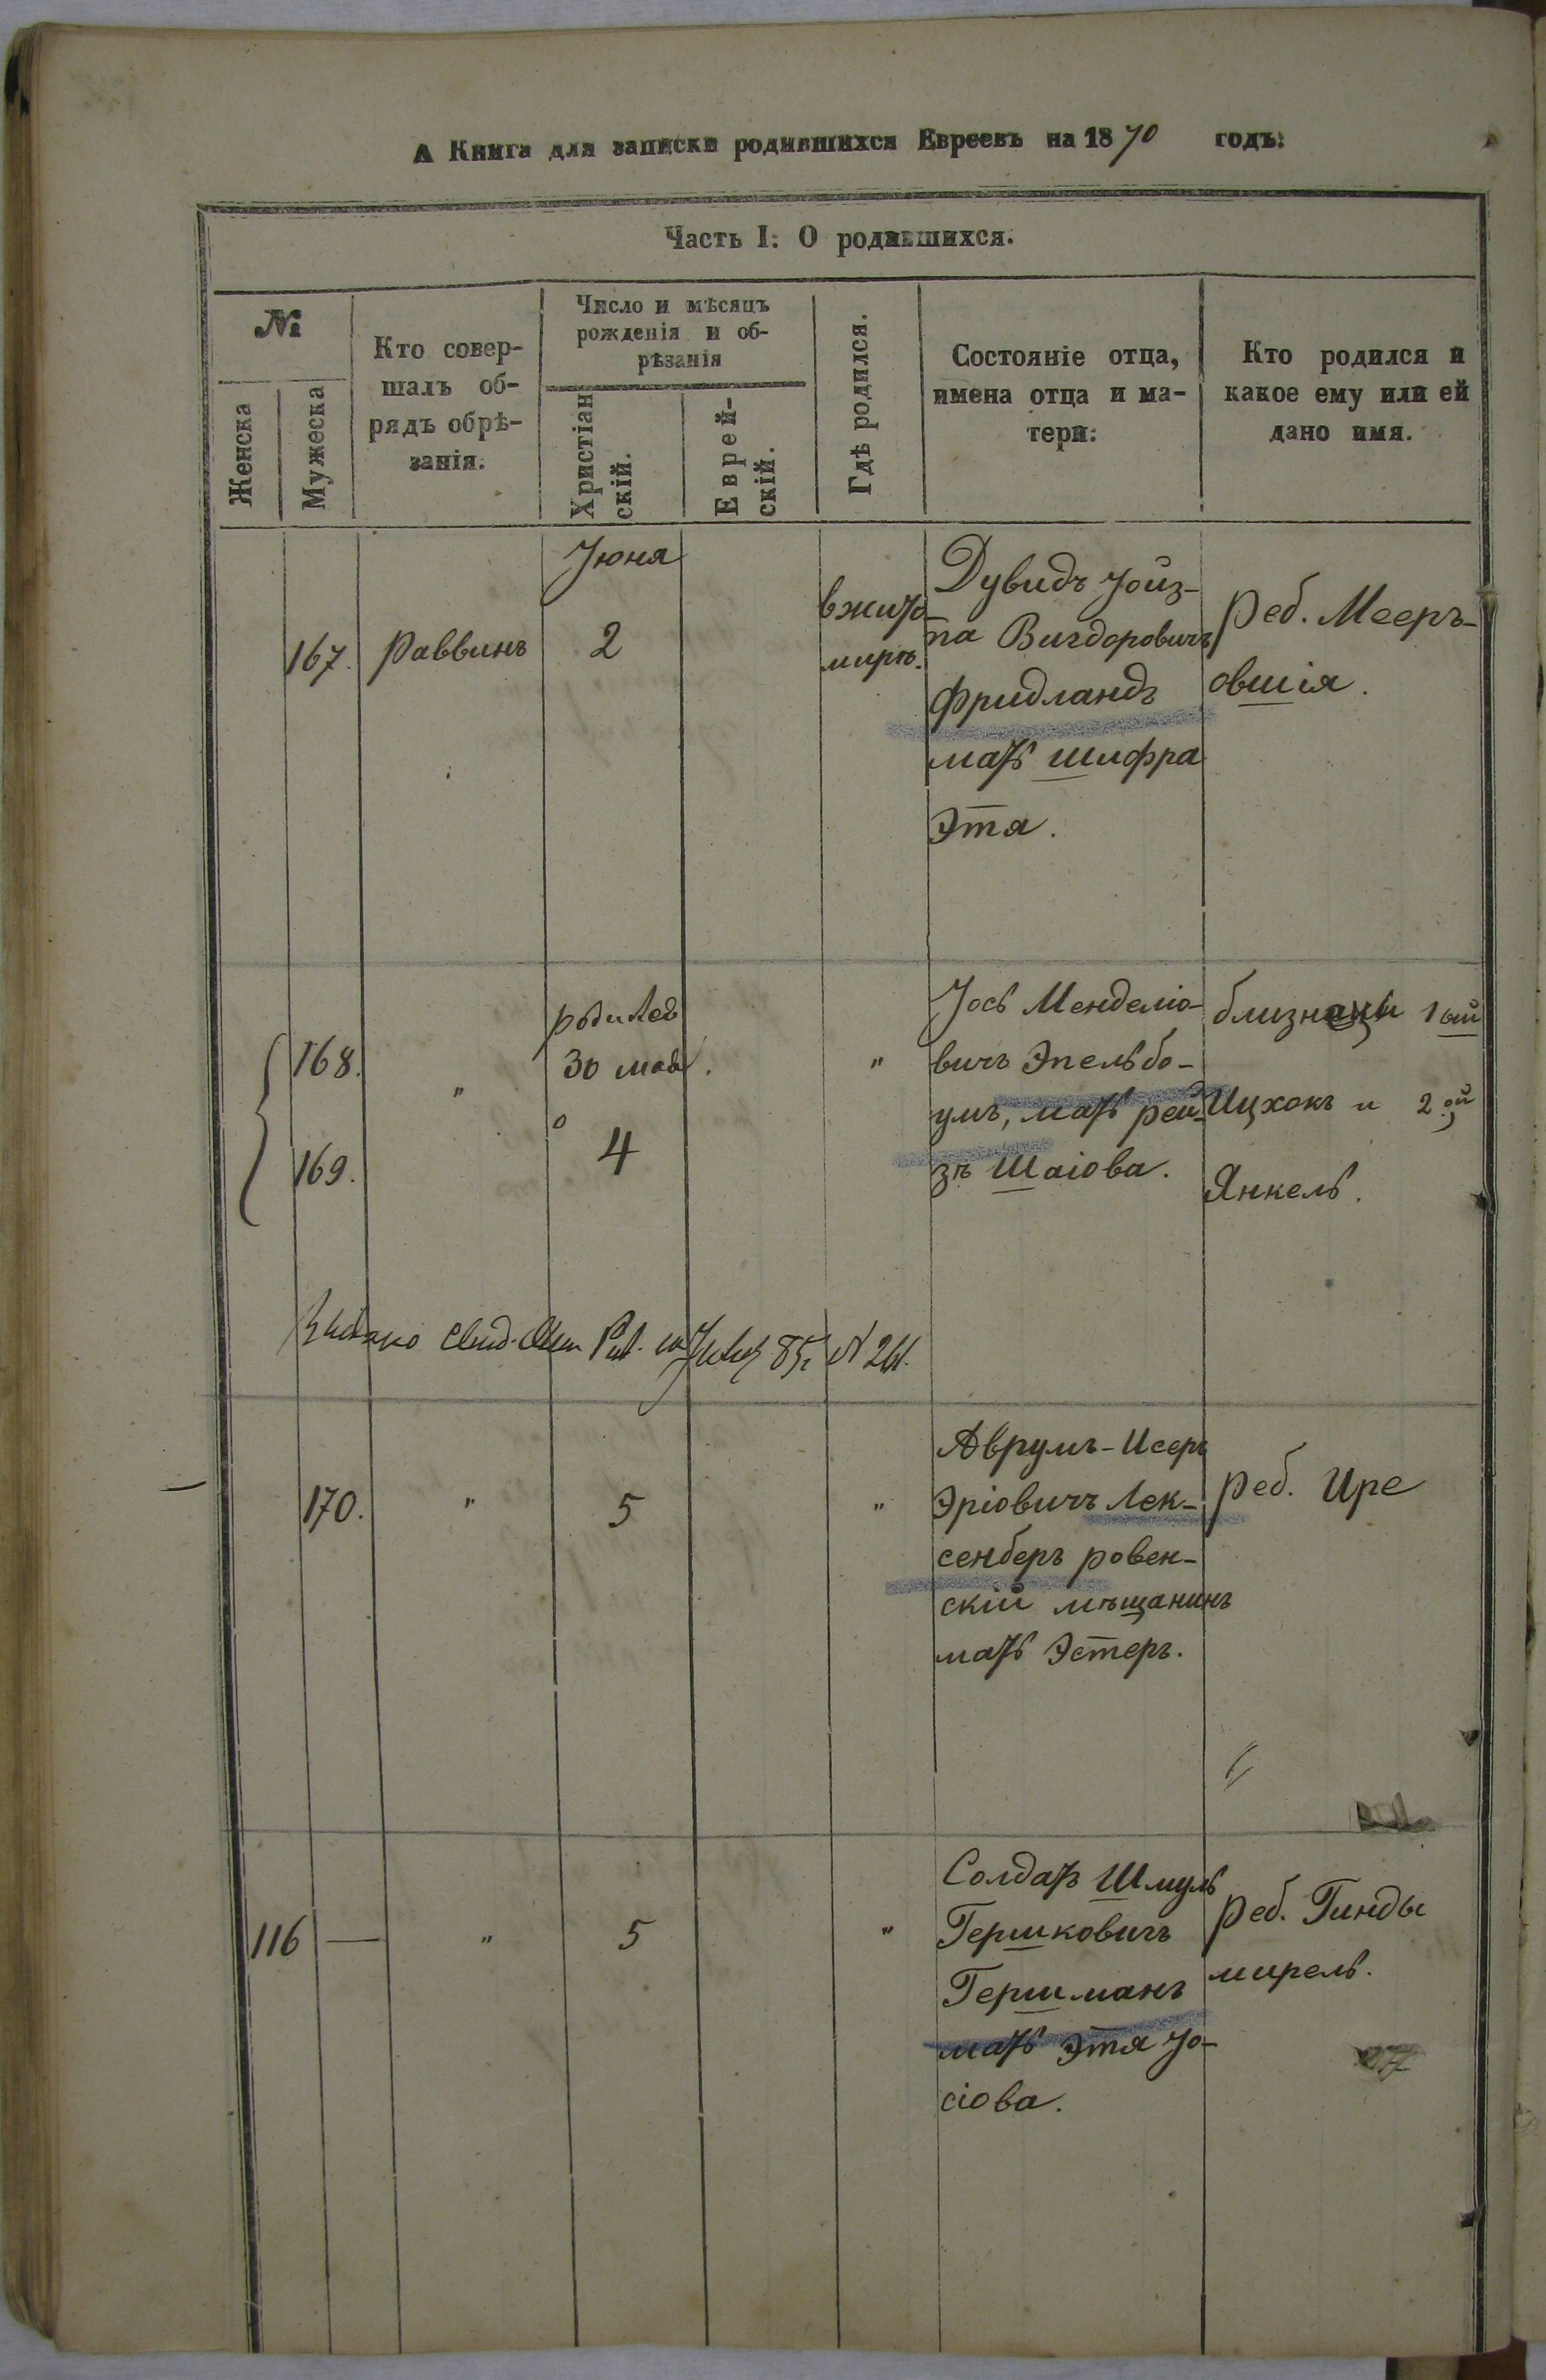 А Книга для записки родившихся Евреевъ на 1870 годъ:
Часть I: О родившихся.
№
Женска
Мужеска
Кто совер-
шалъ об-
рядъ обрѣ-
занія.
Число и мѣсяцъ
рожденія и об-
рѣзанія
Христіан
скій.
Еврей-
скій.
Гдѣ родился.
Состояніе отца,
имена отца и ма-
тери:
Кто родился и
какое ему или ей
дано имя.
167.
Раввинъ
Июня
2
в жито-
мирѣ.
Дувидъ Иойз-
па Вигдоровичъ
Фридландъ
мать Шифра
Этя.
Реб. Мееръ-
овшія.
168.
169.
"
30
4
"
Иось Менделіо-
вичъ Эпельбо-
умъ, мать рей-
зѣ Шаіова.
близнецы 1ый
Ицхокъ и 2ой
Янкель.
85 № 261.
170.
"
5
"
Аврумъ-Исеръ
Эріовичъ Лек-
сенберъ ровен-
скій мѣщанинъ
мать Эстеръ.
Реб. Ире
116
—
"
5
"
Солдатъ Шмуль
Гершковичъ
Гершманъ
мать Этя Ио-
сіова.
Реб. Гинды
мирель.